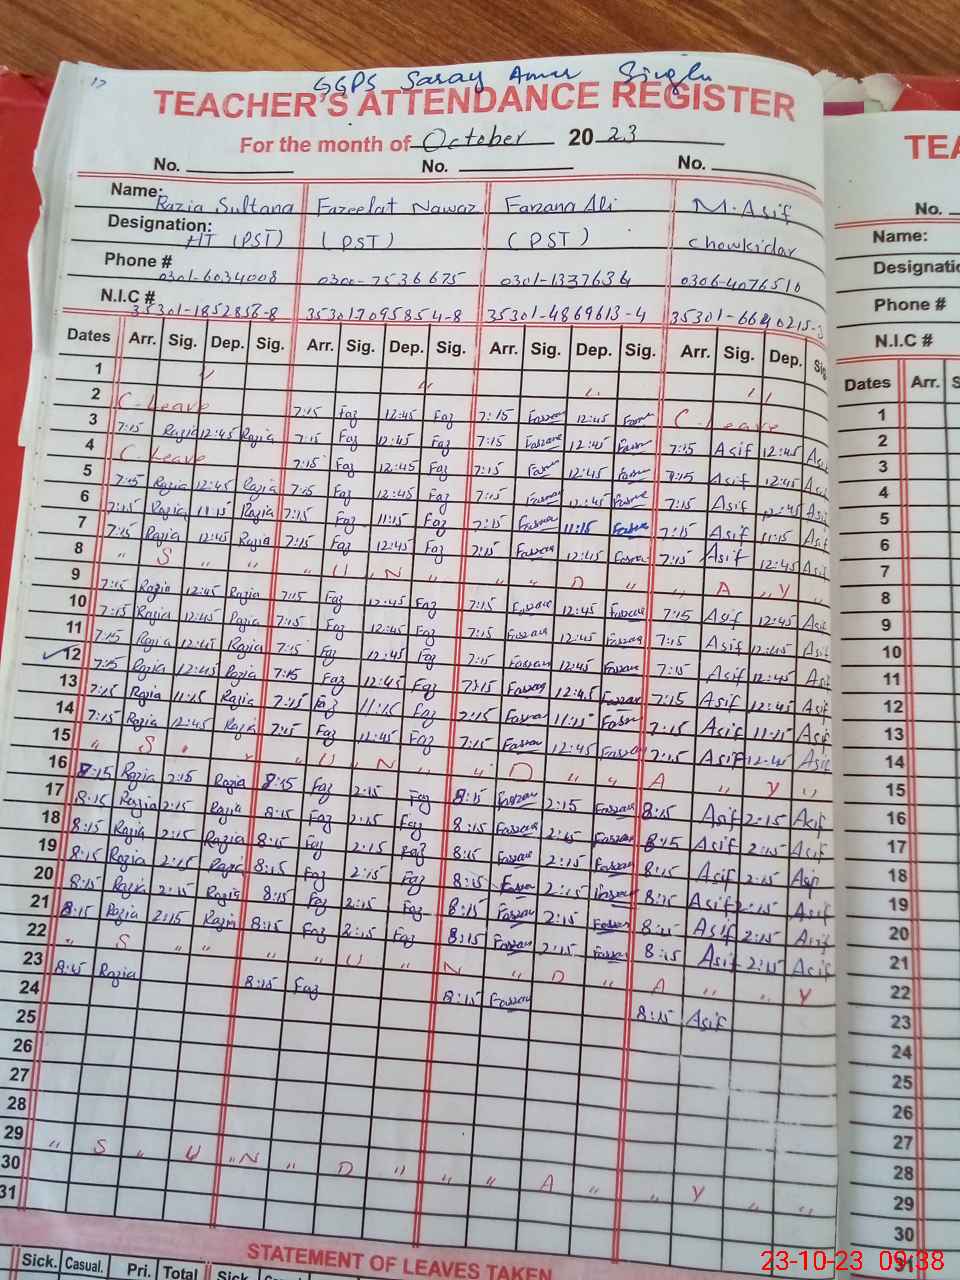 17
GGPS Saray Amar Singh
TEACHER'S ATTENDANCE REGISTER
For the month of October 20 23
No. No. No.
Name: Razia Sultana Fazeelat Nawaz Farzana Ali M. Asif
Designation: HT (PST) (PST) (PST) Chowkidar
Phone # 0301-6034008 0300-7536675 0301-1337634 0306-4076510
N.I.C # 35301-1852856-8 3530170958 54-8 35301-4869613-4 35301-6640215-3
Dates Arr. Sig. Dep. Sig. Arr. Sig. Dep. Sig. Arr. Sig. Dep. Sig. Arr. Sig. Dep. Sig
1 " " " "
2 C-Leave 7:15 Faz 12:45 Faz 7:15 Farzana 12:45 Farzana C-Leave
3 7:15 Razia 12:45 Razia 7:15 Faz 12:45 Faz 7:15 Farzana 12:45 Farzana 7:15 Asif 12:45 Asif
4 C-Leave 7:15 Faz 12:45 Faz 7:15 Farzana 12:45 Farzana 7:15 Asif 12:45 Asif
5 7:15 Razia 12:45 Razia 7:15 Faz 12:45 Faz 7:15 Farzana 12:45 Farzana 7:15 Asif 12:45 Asif
6 7:15 Razia 11:15 Razia 7:15 Faz 11:15 Faz 7:15 Farzana 11:15 Farzana 7:15 Asif 11:15 Asif
7 7:15 Razia 12:45 Razia 7:15 Faz 12:45 Faz 7:15 Farzana 12:45 Farzana 7:15 Asif 12:45 Asif
8 " S " " " U " N " " " D " " A " Y "
9 7:15 Razia 12:45 Razia 7:15 Faz 12:45 Faz 7:15 Farzana 12:45 Farzana 7:15 Asif 12:45 Asif
10 7:15 Razia 12:45 Razia 7:15 Faz 12:45 Faz 7:15 Farzana 12:45 Farzana 7:15 Asif 12:45 Asif
11 7:15 Razia 12:45 Razia 7:15 Faz 12:45 Faz 7:15 Farzana 12:45 Farzana 7:15 Asif 12:45 Asif
12 7:15 Razia 12:45 Razia 7:15 Faz 12:45 Faz 7:15 Farzana 12:45 Farzana 7:15 Asif 12:45 Asif
13 7:15 Razia 11:15 Razia 7:15 Faz 11:15 Faz 7:15 Farzana 11:15 Farzana 7:15 Asif 11:15 Asif
14 7:15 Razia 12:45 Razia 7:15 Faz 12:45 Faz 7:15 Farzana 12:45 Farzana 7:15 Asif 12:45 Asif
15 " S " " " U " N " " D " " A " Y "
16 8:15 Razia 2:15 Razia 8:15 Faz 2:15 Faz 8:15 Farzana 2:15 Farzana 8:15 Asif 2:15 Asif
17 8:15 Razia 2:15 Razia 8:15 Faz 2:15 Faz 8:15 Farzana 2:15 Farzana 8:15 Asif 2:15 Asif
18 8:15 Razia 2:15 Razia 8:15 Faz 2:15 Faz 8:15 Farzana 2:15 Farzana 8:15 Asif 2:15 Asif
19 8:15 Razia 2:15 Razia 8:15 Faz 2:15 Faz 8:15 Farzana 2:15 Farzana 8:15 Asif 2:15 Asif
20 8:15 Razia 2:15 Razia 8:15 Faz 2:15 Faz 8:15 Farzana 2:15 Farzana 8:15 Asif 2:15 Asif
21 8:15 Razia 2:15 Razia 8:15 Faz 2:15 Faz 8:15 Farzana 2:15 Farzana 8:15 Asif 2:15 Asif
22 " S " " " " U " N " D " A " " Y
23 8:15 Razia 8:15 Faz 8:15 Farzana 8:15 Asif
24
25
26
27
28
29 " S " U " N " D " " " A " " Y " "
30
31
STATEMENT OF LEAVES TAKEN
Sick. Casual. Pri. Total Sick.
TEA
No.
Name:
Designatio
Phone #
N.I.C #
Dates Arr. S
1
2
3
4
5
6
7
8
9
10
11
12
13
14
15
16
17
18
19
20
21
22
23
24
25
26
27
28
29
30
31
23-10-23 09:38